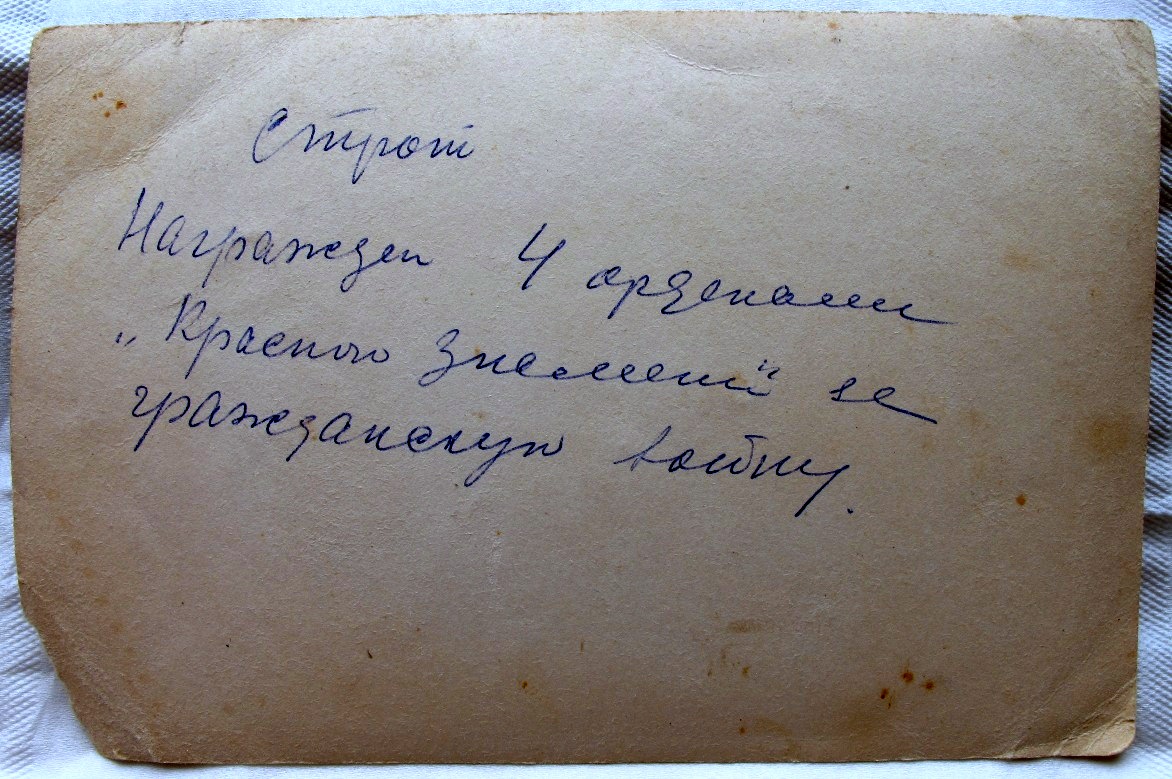 Строт
Награжден 4 орденами
„Красного Знамени" за
гражданскую войну.